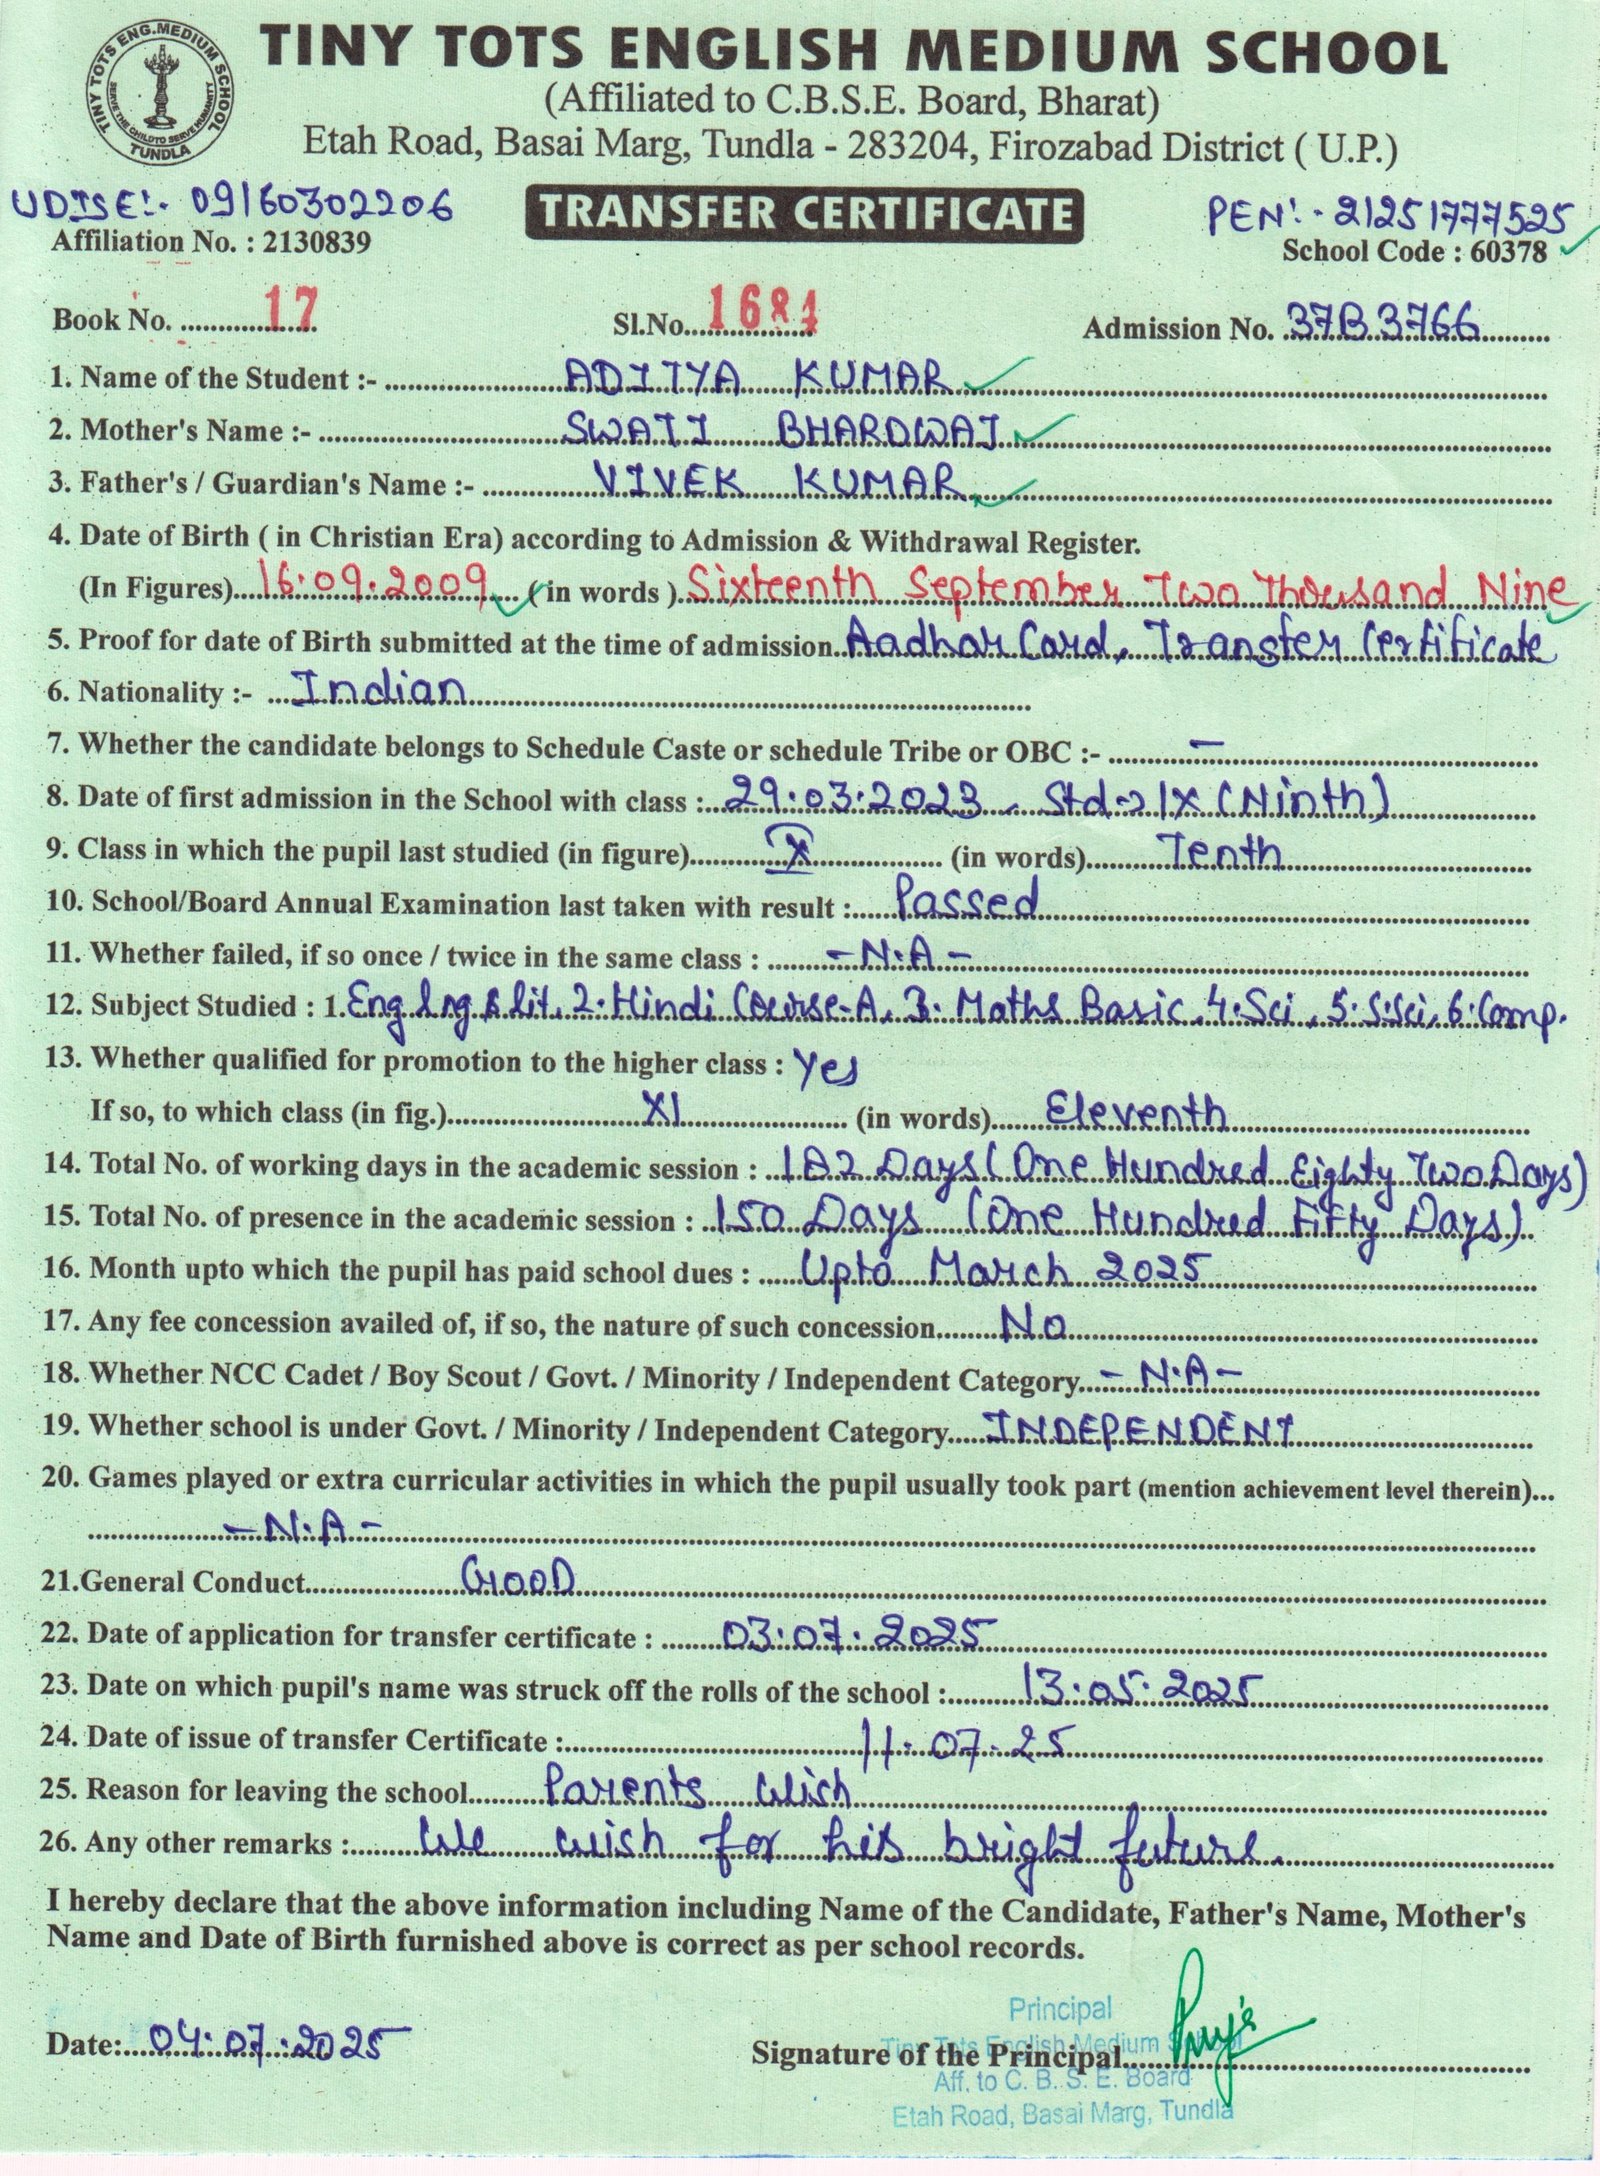 TINY TOTS ENG.MEDIUM SCHOOL
SERVE THE CHILD TO SERVE HUMANITY
TUNDLA
TINY TOTS ENGLISH MEDIUM SCHOOL
(Affiliated to C.B.S.E. Board, Bharat)
Etah Road, Basai Marg, Tundla - 283204, Firozabad District ( U.P.)
UDISE:- 09160302206
TRANSFER CERTIFICATE
PEN:- 21251777525
Affiliation No. : 2130839
School Code : 60378
Book No. 17 Sl.No. 1684 Admission No. 37B3766
1. Name of the Student :- ADITYA KUMAR
2. Mother's Name :- SWATI BHARDWAJ
3. Father's / Guardian's Name :- VIVEK KUMAR
4. Date of Birth ( in Christian Era) according to Admission & Withdrawal Register.
(In Figures) 16.09.2009 (in words ) Sixteenth September Two Thousand Nine
5. Proof for date of Birth submitted at the time of admission Aadhar Card, Transfer Certificate
6. Nationality :- Indian
7. Whether the candidate belongs to Schedule Caste or schedule Tribe or OBC :- —
8. Date of first admission in the School with class : 29.03.2023, Std-> IX (Ninth)
9. Class in which the pupil last studied (in figure) X (in words) Tenth
10. School/Board Annual Examination last taken with result : Passed
11. Whether failed, if so once / twice in the same class : -N.A-
12. Subject Studied : 1. Eng lng & lit, 2. Hindi Course-A, 3. Maths Basic, 4. Sci, 5. S.Sci, 6. Comp.
13. Whether qualified for promotion to the higher class : Yes
If so, to which class (in fig.) XI (in words) Eleventh
14. Total No. of working days in the academic session : 182 Days (One Hundred Eighty Two Days)
15. Total No. of presence in the academic session : 150 Days (One Hundred Fifty Days)
16. Month upto which the pupil has paid school dues : Upto March 2025
17. Any fee concession availed of, if so, the nature of such concession No
18. Whether NCC Cadet / Boy Scout / Govt. / Minority / Independent Category -N.A-
19. Whether school is under Govt. / Minority / Independent Category INDEPENDENT
20. Games played or extra curricular activities in which the pupil usually took part (mention achievement level therein)...
-N.A-
21.General Conduct GOOD
22. Date of application for transfer certificate : 03.07.2025
23. Date on which pupil's name was struck off the rolls of the school : 13.05.2025
24. Date of issue of transfer Certificate : 11.07.25
25. Reason for leaving the school Parents wish
26. Any other remarks : We wish for his bright future.
I hereby declare that the above information including Name of the Candidate, Father's Name, Mother's
Name and Date of Birth furnished above is correct as per school records.
Principal
Tiny Tots English Medium School
Date: 04.07.2025 Signature of the Principal
Aff. to C. B. S. E. Board
Etah Road, Basai Marg, Tundla